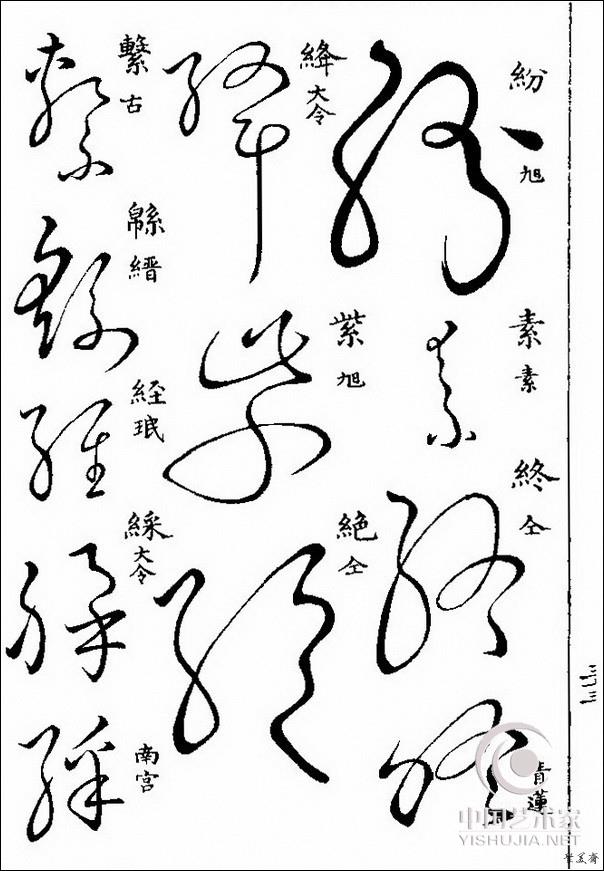 紛
旭
素
素
終
仝
青蓮
絳
大令
紫
旭
絶
仝
繫
古
緜縉
経
珉
綵
大令
南宮
中国艺术家
YISHUJIA.NET